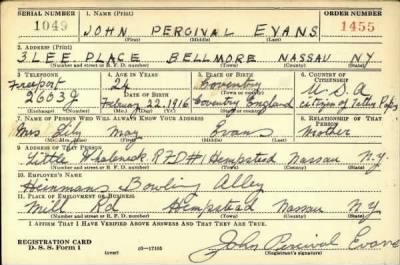 SERIAL NUMBER
1. NAME (Print)
ORDER NUMBER
1049
JOHN PERCIVAL EVANS
1455
(First) (Middle) (Last)
2. ADDRESS (Print)
3 LEE PLACE BELLMORE NASSAU NY
(Number and street or R. F. D. number) (Town) (County) (State)
3. TELEPHONE
4. AGE IN YEARS
5. PLACE OF BIRTH
6. COUNTRY OF CITIZENSHIP
Freeport
24
Coventry
U.S.A
DATE OF BIRTH
(Town or county)
2603J
February 22, 1916
Coventry England
citizen of
(Exchange) (Number)
(Mo.) (Day) (Yr.)
(State or country)
7. NAME OF PERSON WHO WILL ALWAYS KNOW YOUR ADDRESS
8. RELATIONSHIP OF THAT PERSON
Mrs Lily May Evans
Mother
(Mr., Mrs., Miss) (First) (Middle) (Last)
9. ADDRESS OF THAT PERSON
Little Whaleneck RFD#1 Hempstead Nassau N.Y.
(Number and street or R. F. D. number) (Town) (County) (State)
10. EMPLOYER'S NAME
Heinmans Bowling Alley
11. PLACE OF EMPLOYMENT OR BUSINESS
Mill Rd Hempstead Nassau N.Y
(Number and street or R. F. D. number) (Town) (County) (State)
I AFFIRM THAT I HAVE VERIFIED ABOVE ANSWERS AND THAT THEY ARE TRUE.
REGISTRATION CARD
D. S. S. Form 1
(over)
16—17105
John Percival Evans
(Registrant's signature)